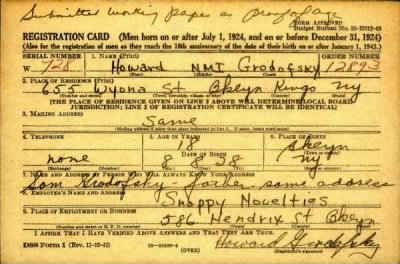 Submitted working paper as proof of age
FORM APPROVED
Budget Bureau No. 33-R013-42
REGISTRATION CARD (Men born on or after July 1, 1924, and on or before December 31, 1924)
(Also for the registration of men as they reach the 18th anniversary of the date of their birth on or after January 1, 1943.)
SERIAL NUMBER 1. NAME (Print) ORDER NUMBER
W 728 Howard NMI Grodofsky 12893
2. PLACE OF RESIDENCE (Print)
655 Wyona St Bklyn Kings NY
[THE PLACE OF RESIDENCE GIVEN ON LINE 2 ABOVE WILL DETERMINE LOCAL BOARD
JURISDICTION; LINE 2 OF REGISTRATION CERTIFICATE WILL BE IDENTICAL]
3. MAILING ADDRESS
Same
[Mailing address if other than place indicated on line 2. If same, insert word same]
4. TELEPHONE 5. AGE IN YEARS 6. PLACE OF BIRTH
18 Bklyn
DATE OF BIRTH
none 8 8 28 NY
7. NAME AND ADDRESS OF PERSON WHO WILL ALWAYS KNOW YOUR ADDRESS
Sam Grodofsky - father same address
8. EMPLOYER'S NAME AND ADDRESS
Snappy Novelties
9. PLACE OF EMPLOYMENT OR BUSINESS
586 Hendrix St Bklyn
I AFFIRM THAT I HAVE VERIFIED ABOVE ANSWERS AND THAT THEY ARE TRUE.
DSS Form 1 (Rev. 11-16-42) (OVER) Howard Grodofsky